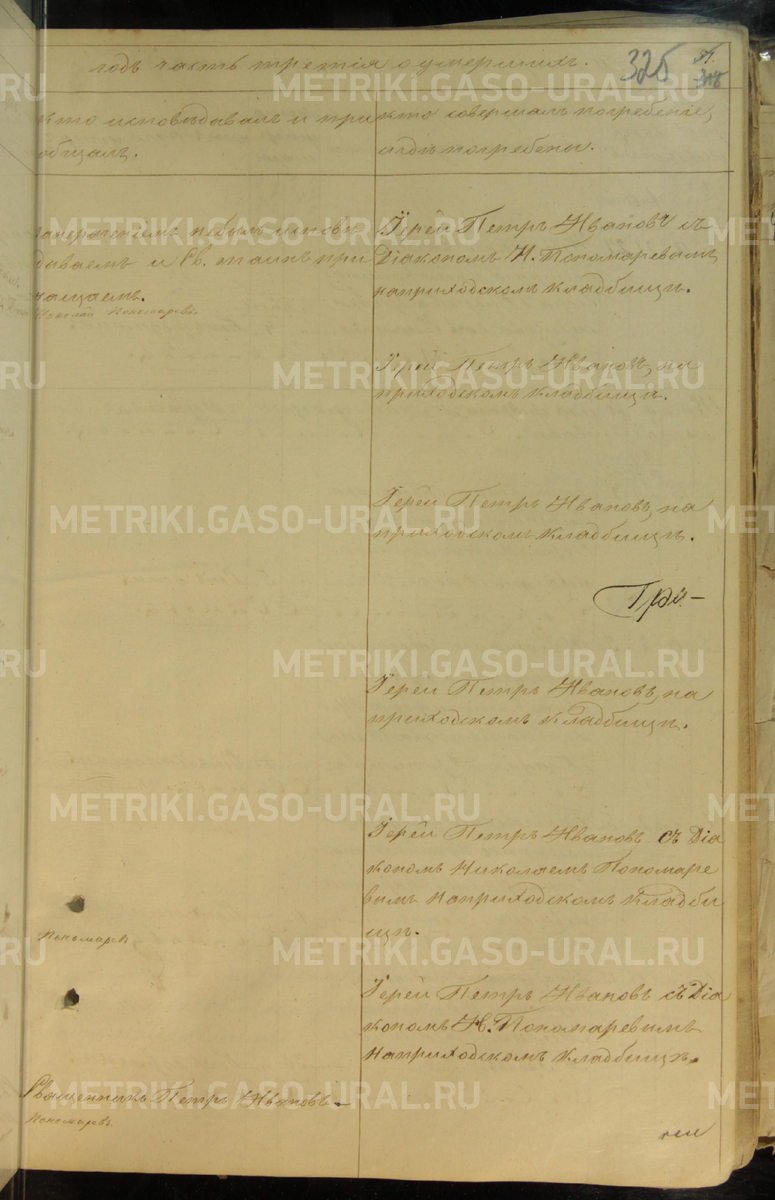 годъ часть третія о умершихъ.
325
кто исповѣдывалъ и при
общалъ.
кто совершалъ погребеніе,
и гдѣ погребены.
не былъ исповѣ
дываемъ и Св. таинъ при
чащаемъ.
Николай Пономаревъ
Іерей Петръ Ивановъ съ
Діакономъ Н. Пономаревымъ
на приходскомъ кладбищѣ.
Іерей Петръ Ивановъ, на
приходскомъ кладбищѣ.
Іерей Петръ Ивановъ, на
приходскомъ кладбищѣ.
Іерей Петръ Ивановъ, на
приходскомъ кладбищѣ.
Іерей Петръ Ивановъ съ Діа
кономъ Николаемъ Пономаре
вымъ на приходскомъ кладби
щѣ.
Пономаревъ
Іерей Петръ Ивановъ съ Діа
кономъ Н. Пономаревымъ
на приходскомъ кладбищѣ.
Священникъ Петръ Ивановъ
Пономаревъ
METRIKI.GASO-URAL.RU